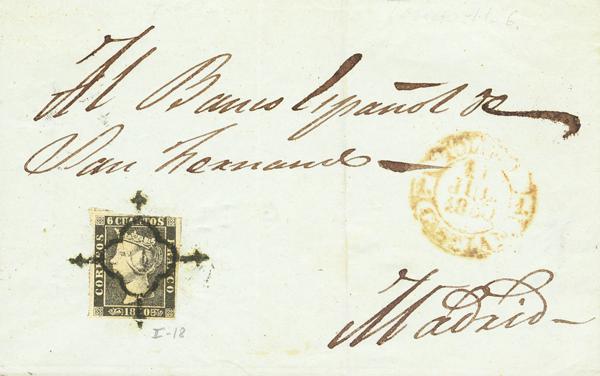 Al Banco Español de
San Fernando
6 CUARTOS
CORREOS
FRANCO
1850
II-18
Madrid